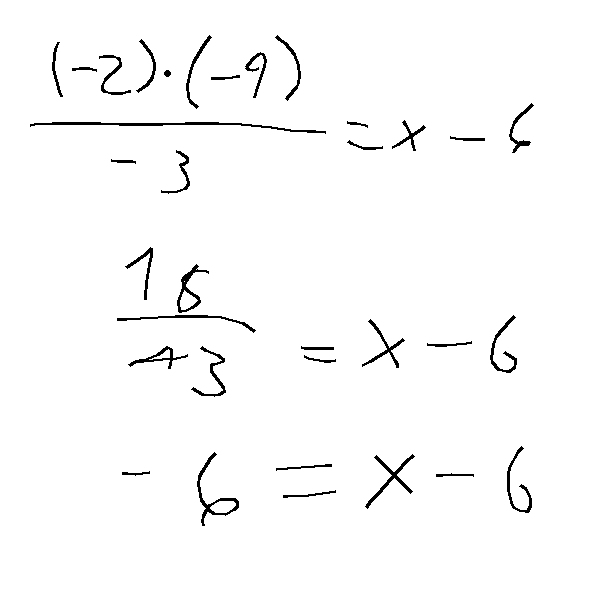 (-2)·(-9)/-3 = x - 6
18/-3 = x - 6
-6 = x - 6